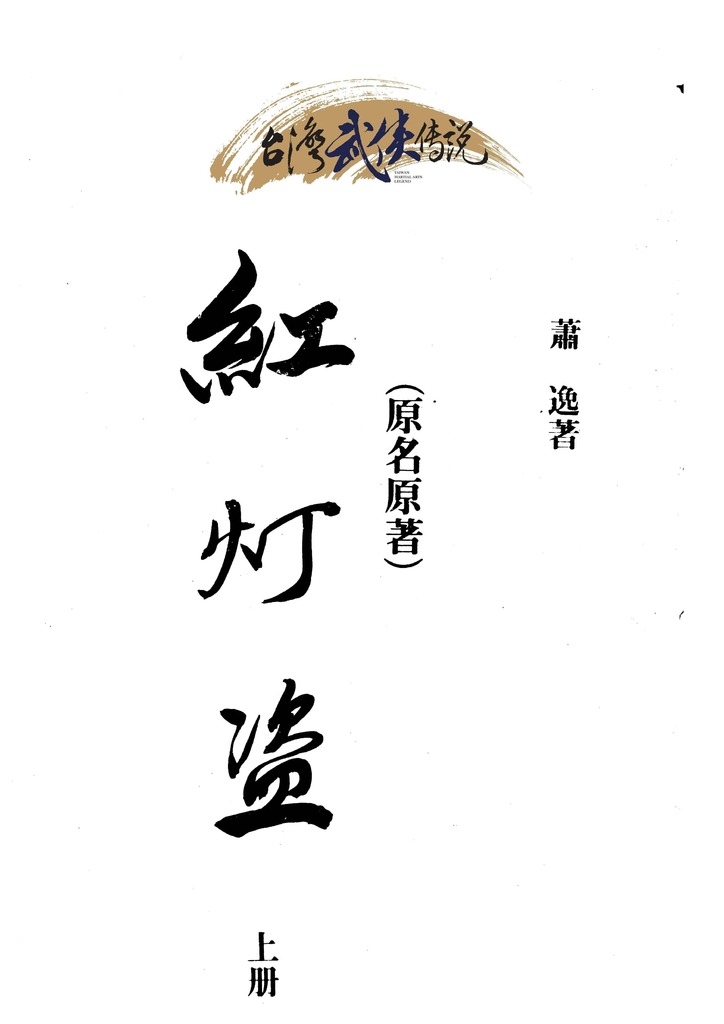 台灣武侠传说
TAIWAN
MARTIAL ARTS
LEGEND
蕭 逸著
(原名原著)
紅灯盗
上册